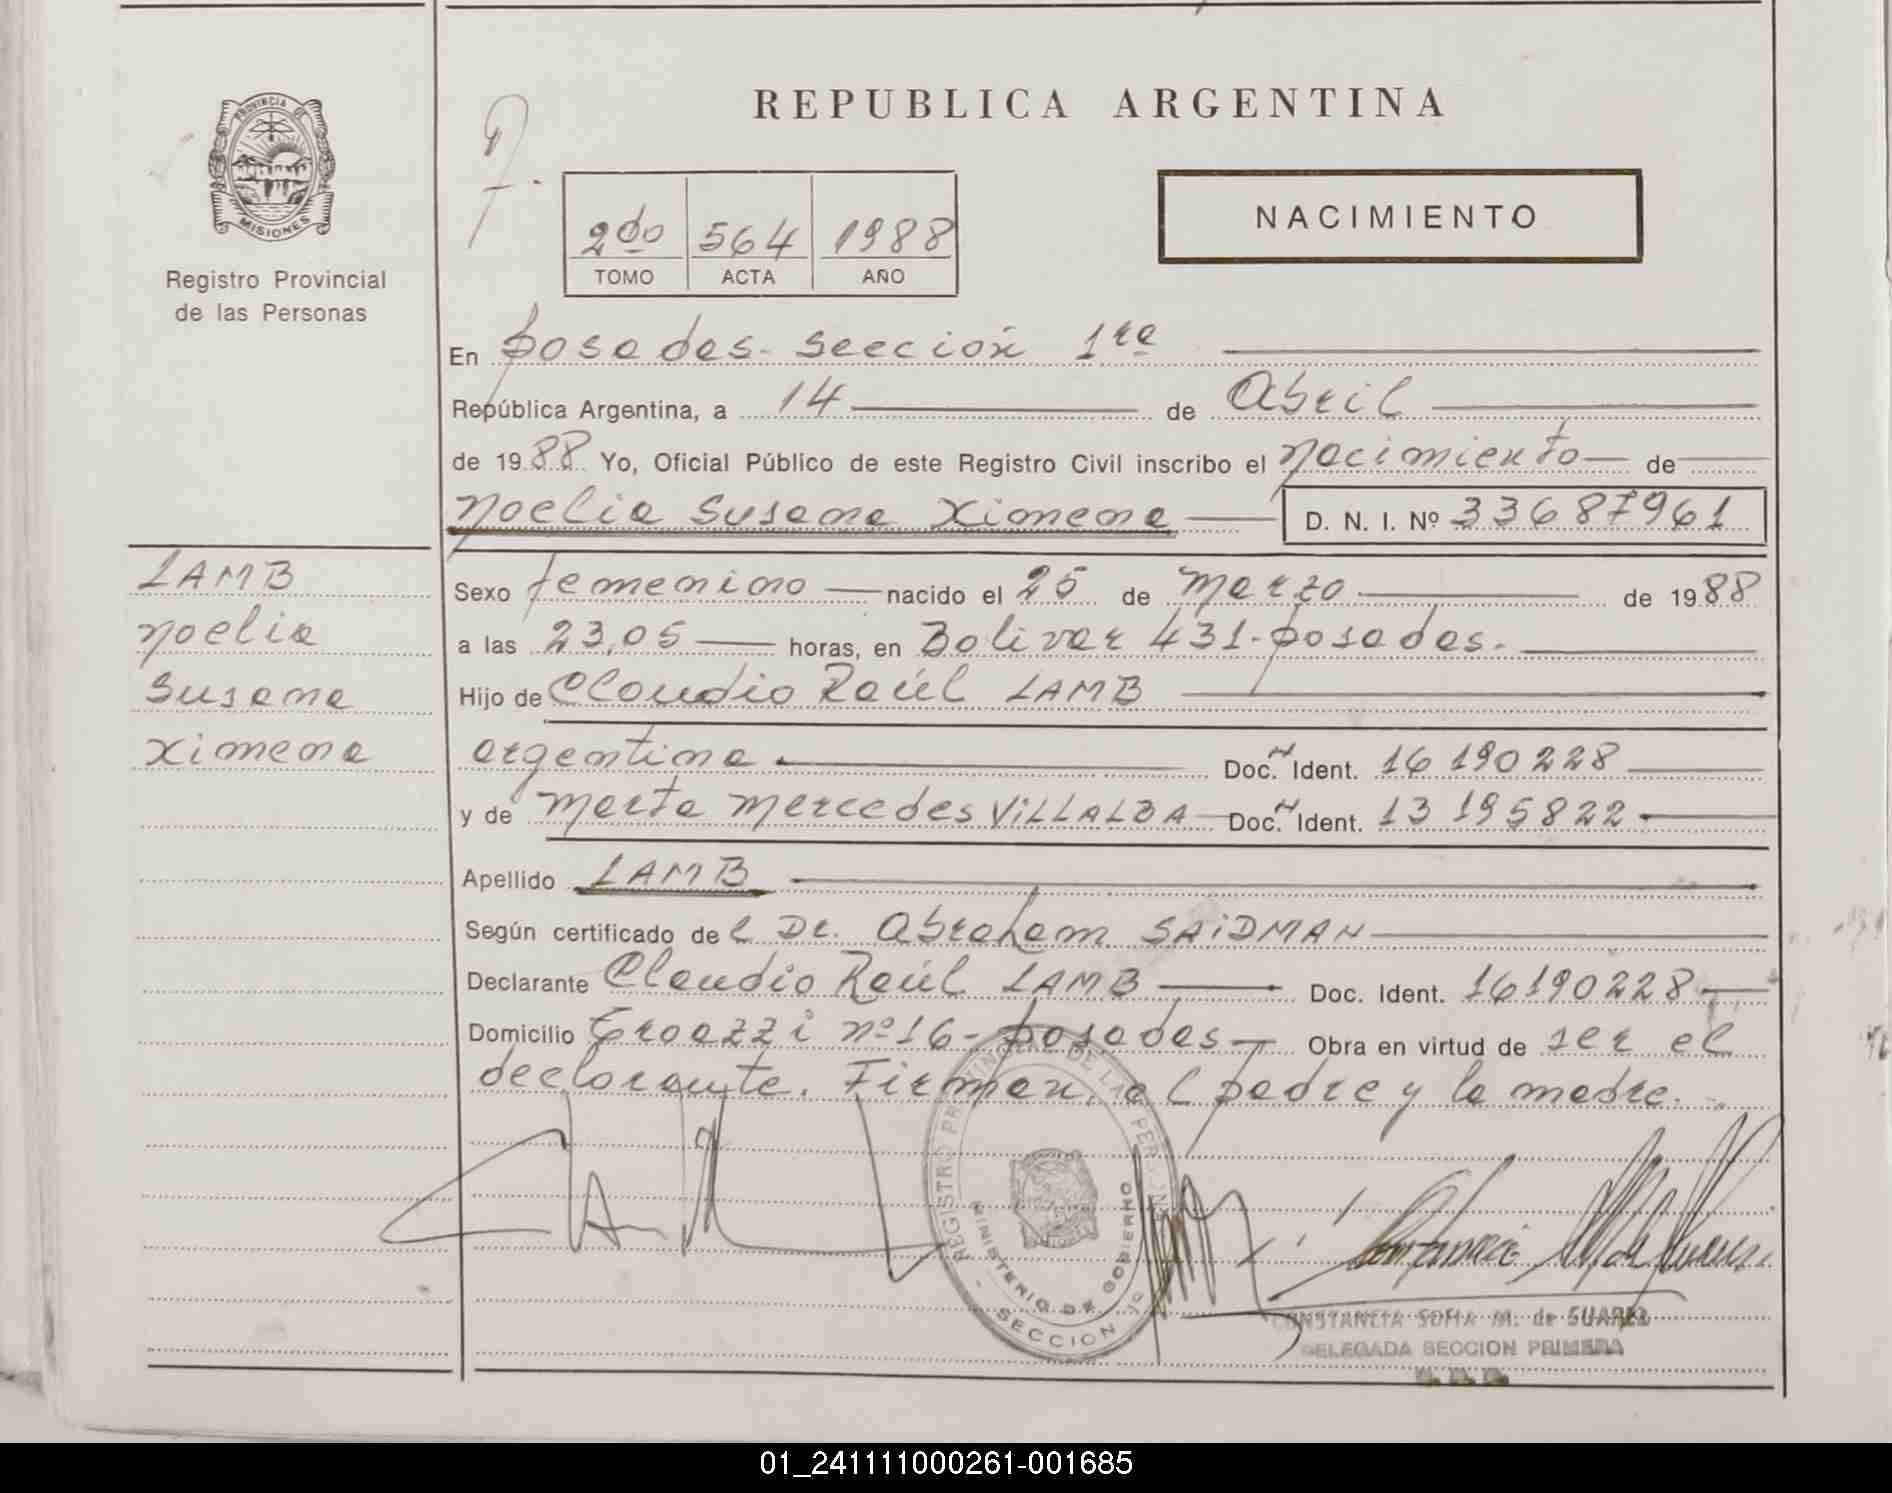 PROVINCIA DE
MISIONES
Registro Provincial
de las Personas
LAMB
Noelia
Susana
Ximena
REPUBLICA ARGENTINA
2do 564 1988
TOMO ACTA AÑO
NACIMIENTO
En Posadas - Sección 1ra
República Argentina, a 14 de Abril
de 1988 Yo, Oficial Público de este Registro Civil inscribo el Nacimiento de
Noelia Susana Ximena D. N. I. Nº 33687961
Sexo femenino nacido el 25 de Marzo de 1988
a las 23,05 horas, en Bolivar 431 - Posadas.
Hijo de Claudio Raúl LAMB
argentina Doc. Ident. 16 190228
y de Marta Mercedes VILLALBA Doc. Ident. 13 195822
Apellido LAMB
Según certificado del Dr. Abraham SAIDMAN
Declarante Claudio Raúl LAMB Doc. Ident. 16190228
Domicilio nº 16 - Posadas Obra en virtud de ser el
declarante. Firman, el padre y la madre.
REGISTRO PROVINCIAL DE LAS PERSONAS
MINISTERIO DE GOBIERNO
SECCION 1º
CONSTANCIA SOFIA M. de SUAREZ
DELEGADA SECCION PRIMERA
01_241111000261-001685